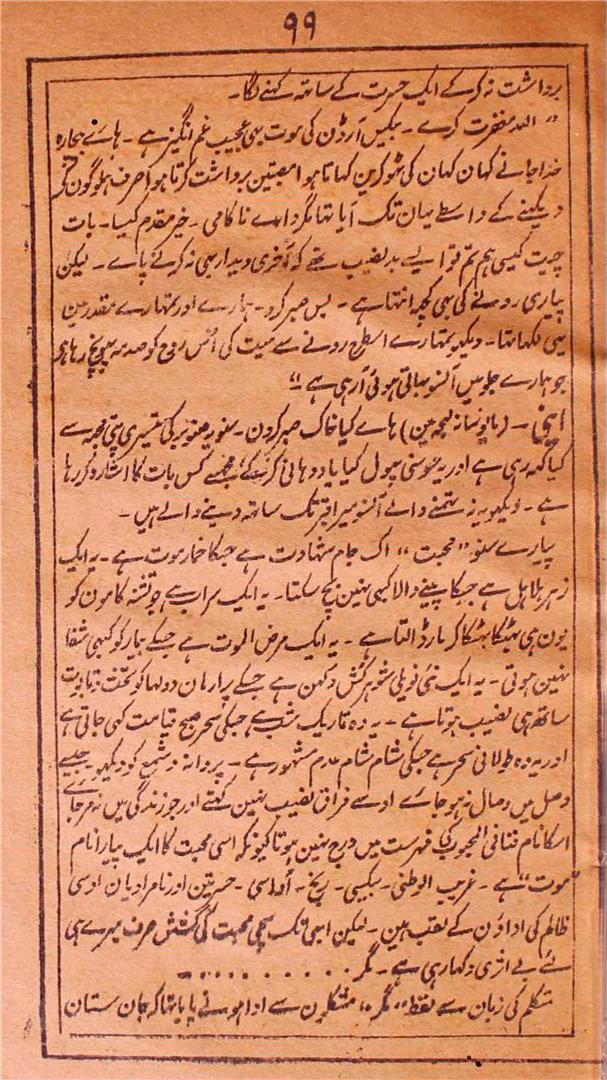 ۹۹
برداشت نہ کر کے ایک حسرت کے ساتھ کہنے لگا۔
"اللہ مغفرت کرے۔ بیکیس آرڈن کی موت بھی عجیب غم انگیز ہے۔ ہائے بیچارہ
خدا جانے کہان کہان کی ٹھوکرین کہاتا ہوا مصبتین برداشت کرتا ہوا صرف ہلوگون کے
دیکہنے کے واسطے یہان تک آیا تہا مگر واے ناکامی۔ خیر مقدم کیسا۔ بات
چیت کیسی ہم تم تو ایسے بدنصیب تھے کہ آخری دیدار بہی نہ کرنے پاے۔ لیکن
پیاری رونے کی بہی کچہ انتہا ہے۔ بس صبر کرو۔ ہمارے اور تمہارے مقدر مین
یہی لکہا تہا۔ دیکہو تمہارے اسطرح رونے سے میت کی اُس روح کو صدمہ پہنچ رہا ہے
جو ہمارے جلو میں آنسو بہاتی ہوئی آ رہی ہے"
اینی۔ (مایوسانہ لہجہ مین) ہاے کیا خاک صبر کرون۔ سنو یہ صنوبر کی تیسری پتی مجہ سے
کیا کہہ رہی ہے اور یہ سوسنی پہول کیا یاد دہانی کر کے مجہسے کس بات کا اشارہ کر رہا
ہے۔ دیکہو یہ نہ تہمنے والے آنسو میرا قبر تک ساتہہ دینے والے ہیں۔
پیارے سنو "محبت" اک جام شہادت ہے جسکا خمار موت ہے۔ یہ ایک
زہر ہلاہل ہے جسکا پینے والا کبہی نہین بچ سکتا۔ یہ ایک سراب ہے جو تشنہ کامون کو
یون ہی بہٹکا بہٹکا کر مار ڈالتا ہے۔ یہ ایک مرض الموت ہے جسکے بیمار کو کبہی شفا
نہین ہوتی۔ یہ ایک نئی نویلی شوہر کُش دلہن ہے جسکے پرارمان دولہا کو تخت و تابوت
ساتھ ہی نصیب ہوتا ہے۔ یہ وہ تاریک شب ہے جسکی سحر صبح قیامت کہی جاتی ہے
اور یہ وہ طولانی سحر ہے جسکی شام شام عدم مشہور ہے۔ پروانہ و شمع کو دیکہو۔ جسے
وصل میں وصال نہ ہو جاے اوسے فراق نصیب نہین کہتے اور جو زندگی میں نہ مر جاے
اسکا نام فنافی المحبوب کی فہرست میں درج نہین ہوتا کیونکہ اسی محبت کا ایک پیارا نام
"موت" ہے۔ غریب الوطنی۔ بیکسی۔ رنج۔ اُداسی۔ حسرتین اور نامرادیان اوسی
ظالم کی اداؤن کے لقب ہین۔ لیکن ابہی تک سچی محبت کی کشش صرف میرے ہی
لئے بے اثری دکہا رہی ہے۔ مگر . . . . . . . . . .
متکلم کی زبان سے لفظ "مگر" مشکلون سے ادا ہونے پایا تہا کہ جان ستان